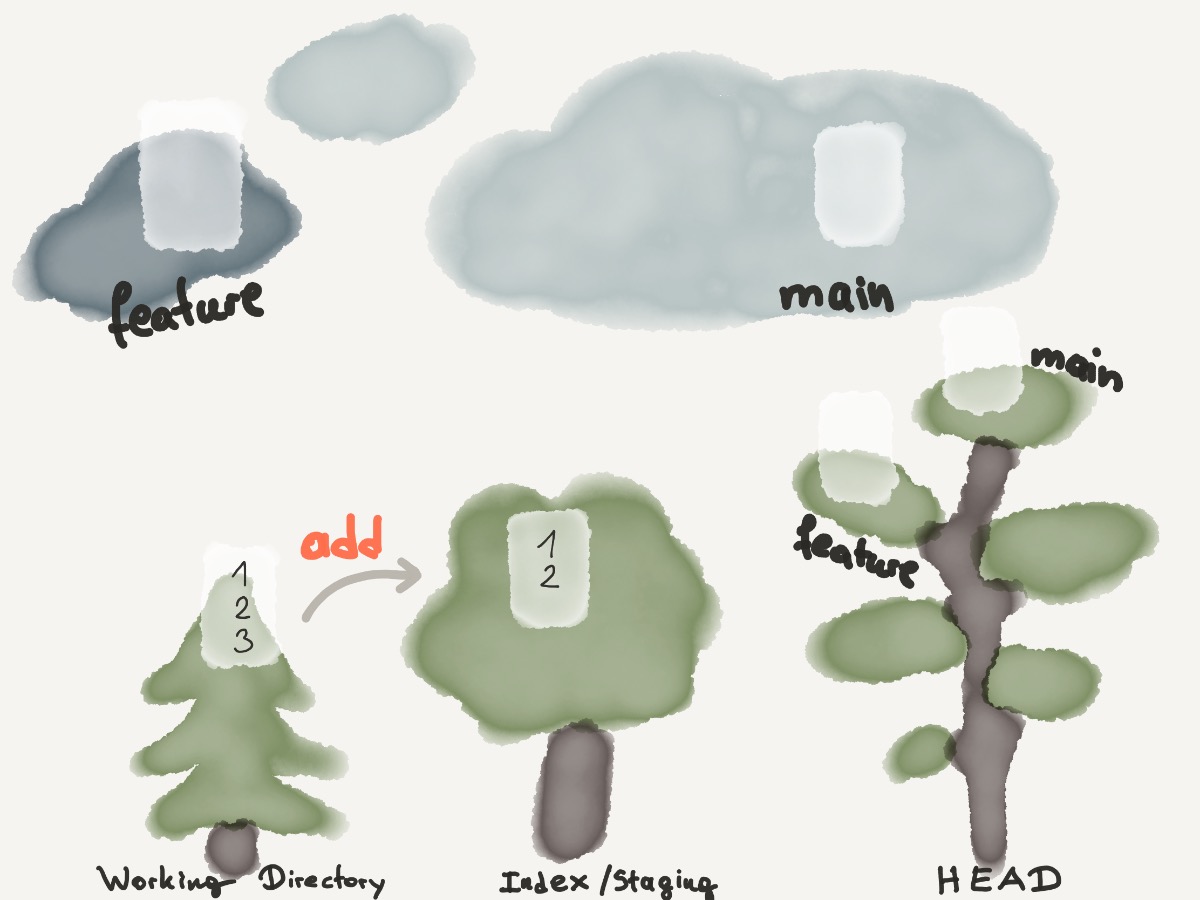 feature
main
main
feature
add
1
2
3
1
2
Working Directory
Index/Staging
HEAD